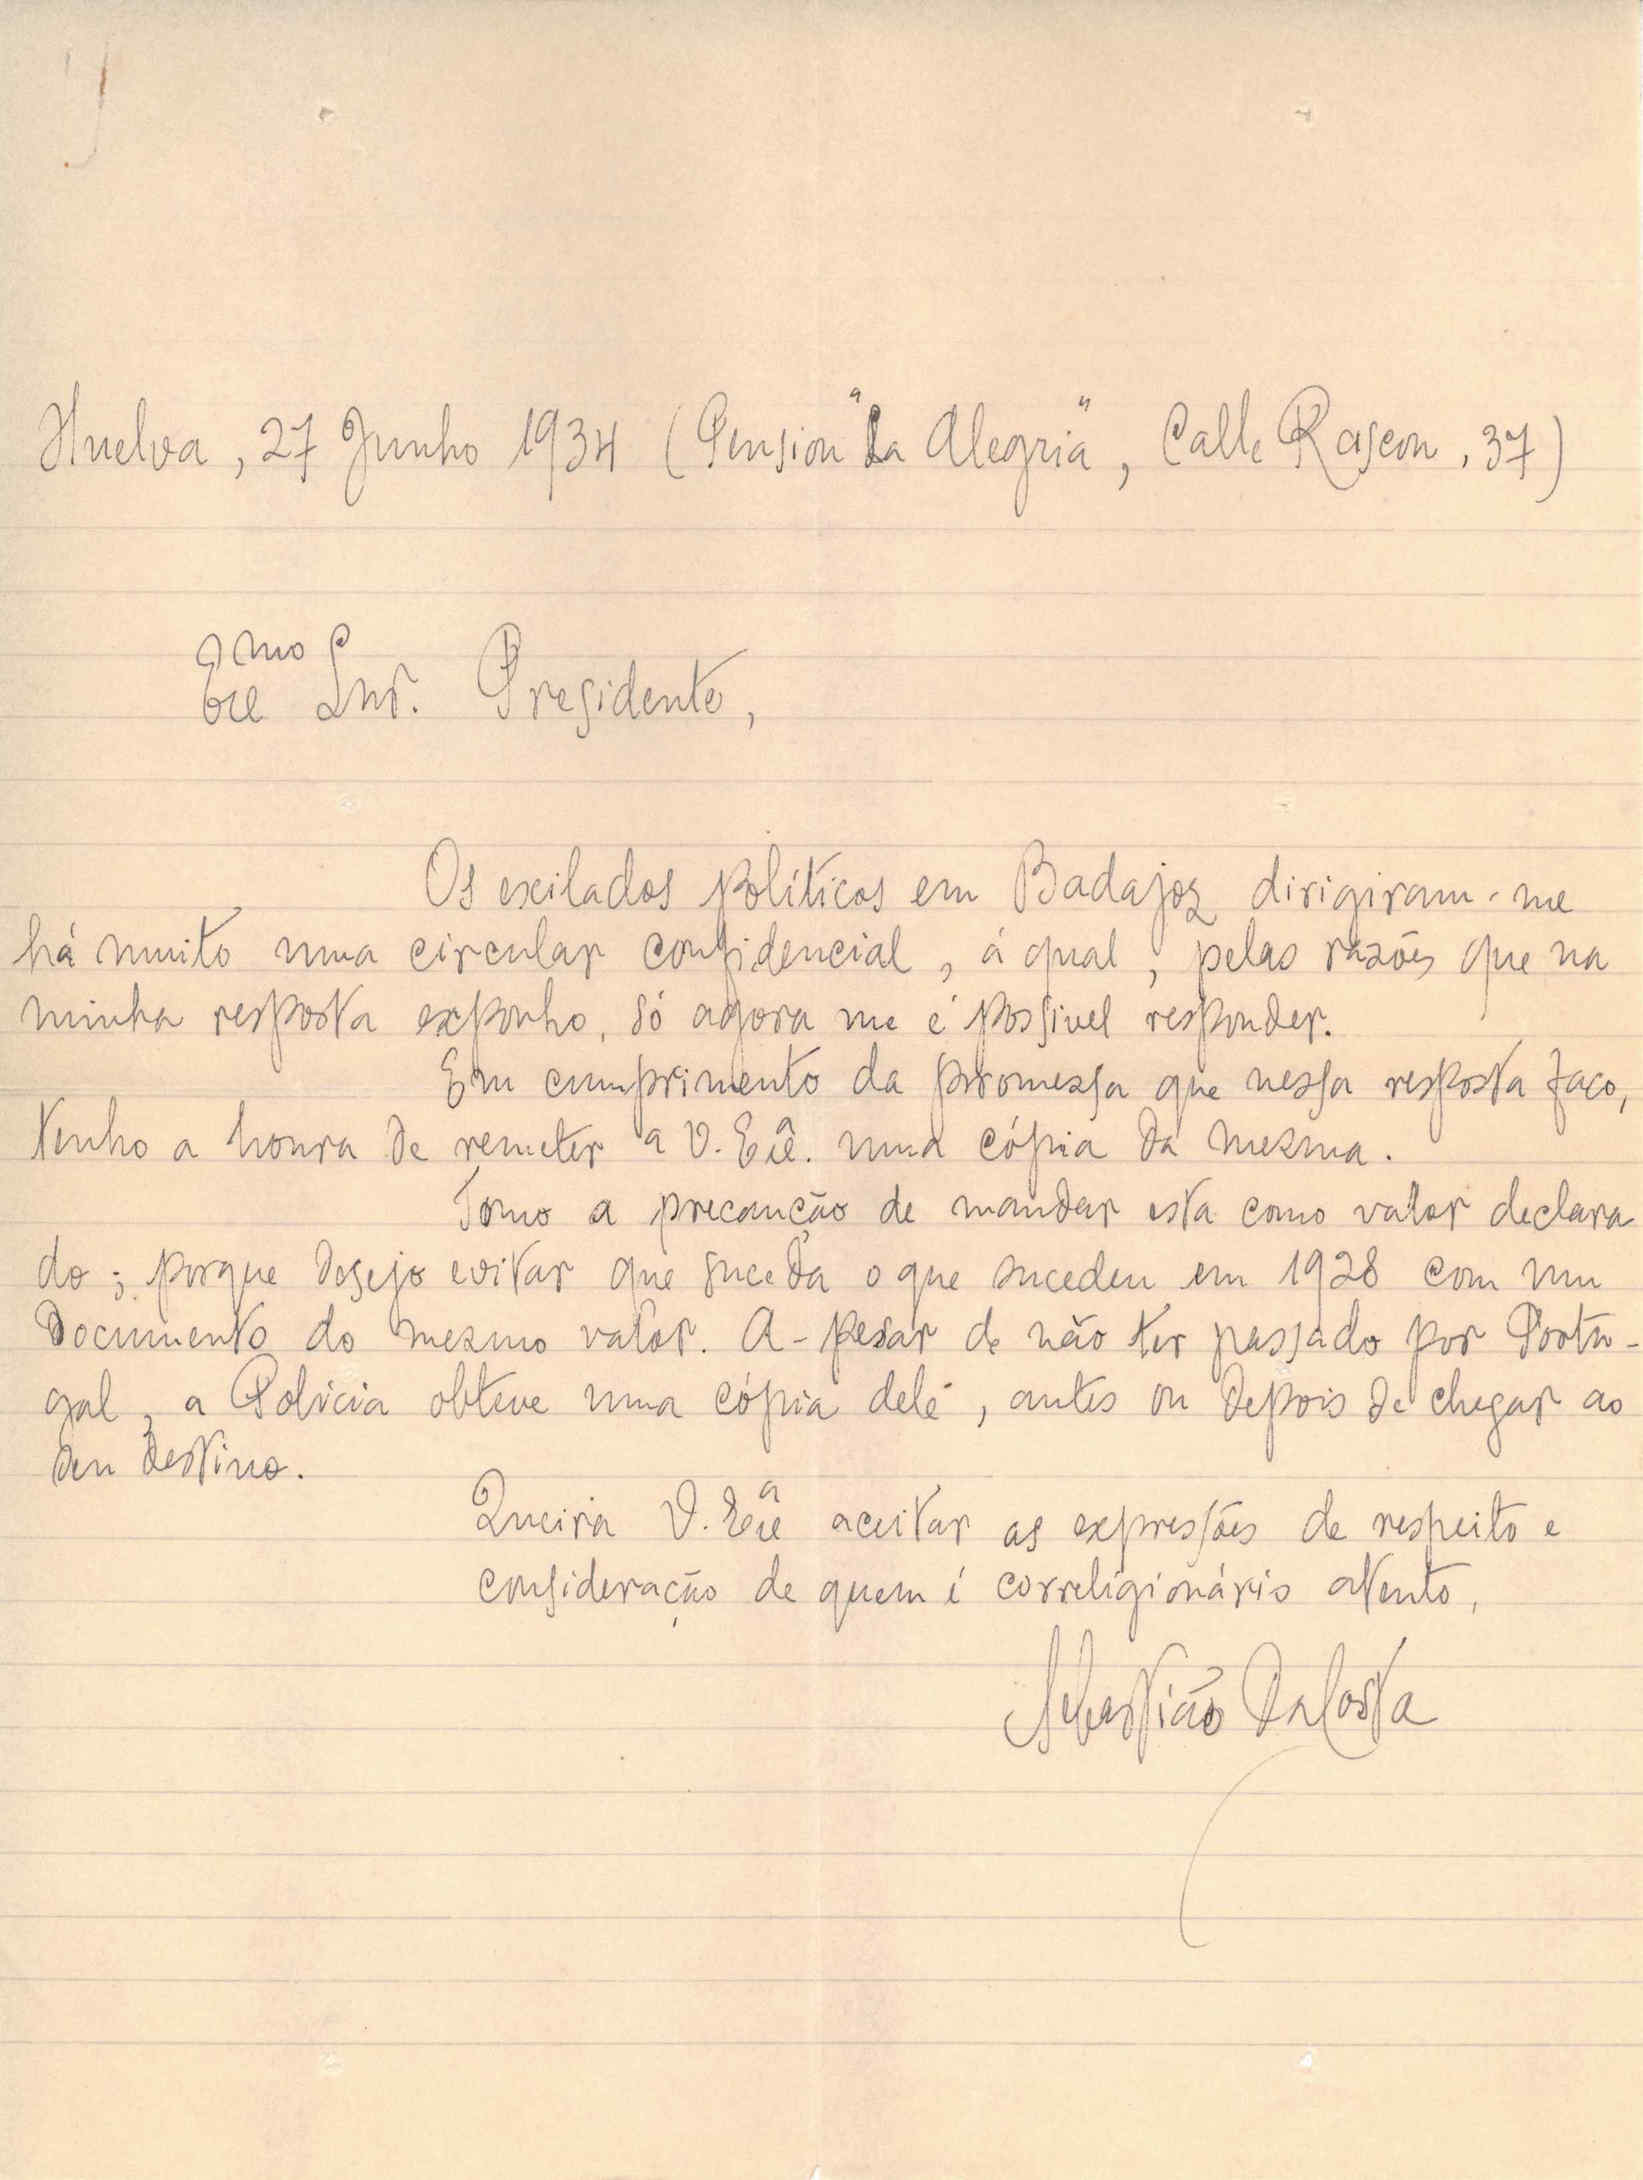 Huelva, 27 Junho 1934 (Pension "La Alegria", Calle Rascon, 37)
Exmo Snr. Presidente,
Os exilados políticos em Badajoz dirigiram-me
há muito uma circular confidencial, á qual, pelas razões que na
minha resposta exponho, só agora me é possivel responder.
Em cumprimento da promessa que nessa resposta faço,
tenho a honra de remeter a V. Exª. uma cópia da mesma.
Tomo a precaução de mandar esta como valor declara
do; porque desejo evitar que suceda o que sucedeu em 1928 com um
documento do mesmo valor. A-pesar de não ter passado por Portu-
gal, a Policia obteve uma cópia dele, antes ou depois de chegar ao
seu destino.
Queira V. Exª aceitar as expressões de respeito e
consideração de quem é correligionário atento,
Sebastião DaCosta